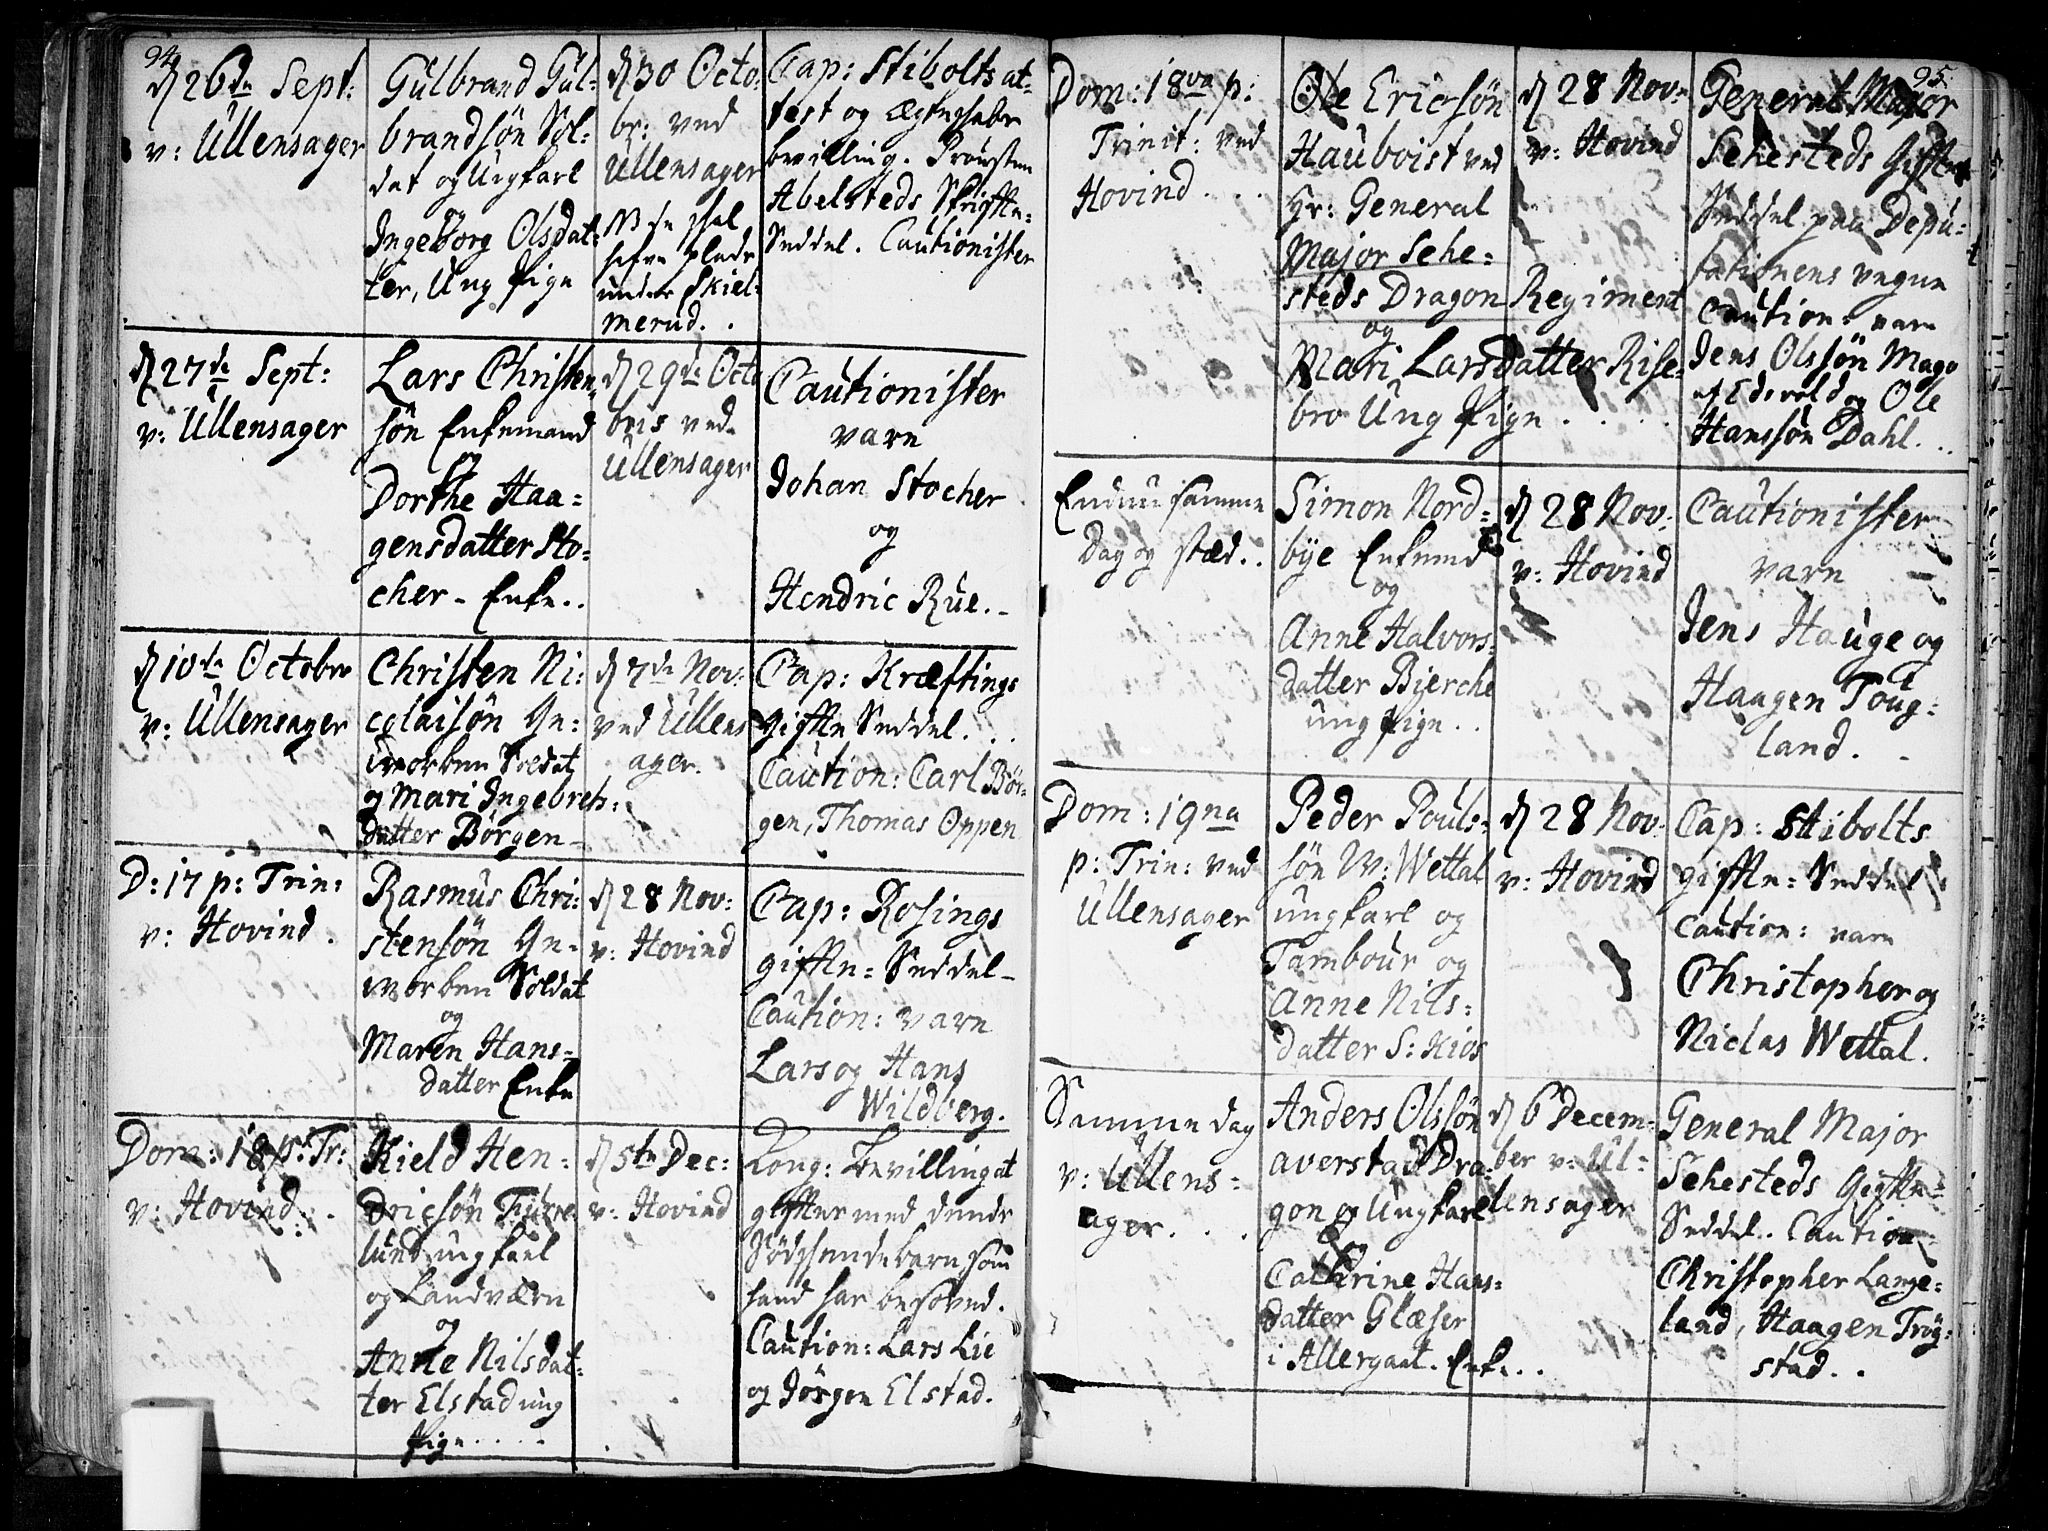 94
d 26de Sept:
v: Ullensager
Gulbrand Gul-
brandsön Sol-
dat og Ungkarl
og
Ingeborg Olsdat-
ter, Ung Pige
d 30 Octo-
br: ved
Ullensager
NB de skal
hafve plads
under Skiel-
merud. .
Cap: Stibolts at-
test og Ægteskabs
bevilling. Provsten
Abelsteds Skrifte-
Seddel. Cautionister
d 27de Sept:
v: Ullensager
Lars Christen-
sön Enkemand
og
Dorthe Haa-
gensdatter Sto-
cher - Enke..
d 29de Octo
bris ved
Ullensager
Cautionister
vare
Johan Stocher
og
Hendric Rue. -
d 10de Octobr
v: Ullensager
Christen Ni-
colaisön Ge-
worben Soldat
og Mari Ingebrets-
datter Börgen -
d 7de Nov:
ved Ullens
ager.
Cap: Kræftings
gifte Seddel. . .
Caution: Carl Bör-
gen, Thomas Oppen
D: 17 p: Trin:
v: Hovind .
Rasmus Chri-
stensön Ge-
worben Soldat
og
Maren Hans-
datter Enke
d 28 Nov:
v: Hovind
Cap: Rosings
gifte = Seddel -
Caution: vare
Lars og Hans
Wildberg.
Dom: 18 p: Tr:
v: Hovind . .
Kield Hen-
dricsön
lund ungkarl
og Landværn
og
Anne Nilsdat-
ter Elstad ung
Pige . . . . .
d 5te Dec:
v: Hovind
Kong: Bevilling at
gifter med dende
Södskendebarn som
hand har besoved.
Caution: Lars Lie
og Jörgen Elstad.
95.
Dom: 18va p:
Trinit: ved
Hovind . . . .
Ole Ericsön
Hauboist ved
Hr: General
Major Sehe-
steds Dragon Regiment
og
Mari Larsdatter Rise-
bro Ung Pige . . . .
d 28 Nov:
v: Hovind
General Major
Sehesteds Gifte
Seddel paa Depu-
tationens vegne
Caution: vare
Jens Olssön Mago
af Edsvold og Ole
Hanssön Dahl. . .
Endnu samme
Dag og stæd . .
Simon Nord-
bye Enkemd
og
Anne Halvors-
datter Bierche
ung Pige . .
d 28 Nov:
v: Hovind
Cautionister
vare
Jens Hauge og
Haagen Toug-
land. .
Dom: 19na
p: Trin: ved
Ullensager
Peder Pouls-
sön W: Wettal
ungkarl og
Tambour og
Anne Nils-
datter S: Kios
d 28 Nov:
v: Hovind
Cap: Stibolts
gifte = Seddel
Caution: vare
Christopher og
Niclas Wettal.
Samme dag
v: Ullens-
ager. . . .
Anders Olssön
averstad Dra-
gon og Ungkarl
og
Cathrine Hans-
datter Glæser
i Allergaat. Enke . . .
d 6 Decem-
ber v: Ul-
lensager
General Major
Sehesteds Gifte-
Seddel. Caution
Christopher Lange-
land, Haagen Trög-
stad. .